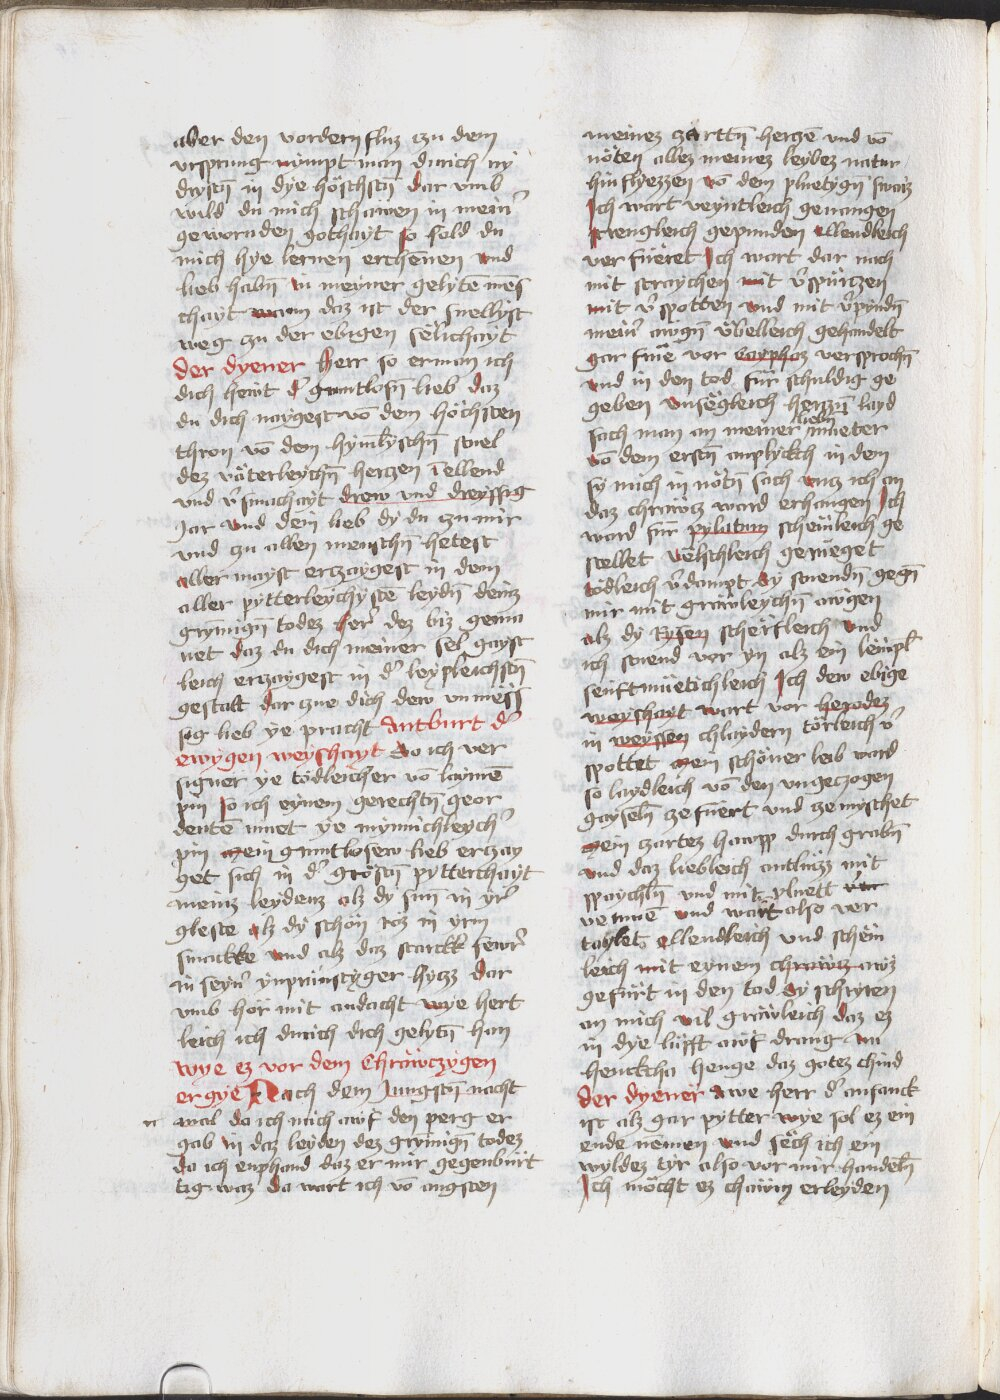 aber den vordern fluz czu dem
vrsprung nimpt man durich ny
drystn̄ in dye höschstn̄ dar vmb
wild du mich schawen in mein̾
gewornden gothayt so sold du
mich hye lernen erchenen und
lieb habn̄ in meyner gelytē mēs
chayt wann daz ist der snellist
weg zu der ebigen sëlichayt
der dyener Herr so erman ich
dich hewt d̾ gruntlosn̄ lieb daz
du dich naygest vō dem höchsten
thron vō dem hymlyschn̄ stuel
dez väterleychn̄ herczen Tellend
vnd v̾smachayt drew vnd dreyssig
Jar und dein lieb dy du czu mir
vnd zu allen menschn̄ hetest
aller mayst erczaygest in dem
aller pytterleychystē leydn̄ deinz
grymign̄ todez her̾ dez biz genna
net daz du dich meiner sel gayst
leich erczaygest in d̾ leypleichstn̄
gestalt dar czue dich dew vnmëss
sig lieb ye pracht Antburt d̾
ewygen weyshayt So ich ver
signer ye tödleicher vō laymē
pin so ich eynem gerechtn̄ geor
dentē muet ye mynnichleych̾
pin mein gruntlosew lieb erczay
get sich in d̾ gröstn̄ pytterchayt
meinz leydenz alz dy sun in yr̾
gleste alz dy schön roz in yrm
smakke und alz daz starckk fewr̾
in seyn̾ ynprünstyger hycz dar
vmb hör mit andacht wye hert
leich ich durich dich gelytn̄ han
wye ez vor dem Chräwczygen
ergye Nach dem Jungstn̄ nacht
mal da ich mich awf den perg er
gab in daz leyden dez grymign̄ todez
da ich enphand daz er mir gegenbürt
tig waz da wart ich vō angsten
meinez zarttn̄ herczē und vō
nöten allez meinez leybez natur
hin flyezzen vō dem pluetygn̄ swaiz
Ich wart veyntleich geuangen
strengleich gepunden ellendleich
ver füeret Ich wart dar nach
mit straychen mit v̾spürczen
mit v̾spotten und mit v̾pyndn̄
mein̾ awgn̄ übelleich gehandelt
gar frue vor cayphaz versprochn̄
und in den tod für schuldig ge
geben unsëgleich herczn̄ layd
sach man an meiner liebn̄ mueter
vō dem erstn̄ anplyckch in dem
sy mich in nötn̄ sach uncz ich an
daz chräwcz ward erhangen Ich
ward für pylatum scheinleich ge
stellet välschleich gerüeget
tödleich v̾dampt dy stuendn̄ gegn̄
mir mit gräwleychn̄ awgen
alz dy Rysen scheifleich und
ich stuend vor yn alz ein lempl̄
senftmüetichleich Ich dew ebige
weyshayt wart vor herodez
in weyssen chlaydern törleich v̾
spottet mein schöner leib ward
so laydleich vō den ungeczogen
gayseln̄ zefuert und zemyschet
mein zartez hawpp durch grabn̄
und daz liebleich antlicz mit
spaychln̄ und mit pluett
verunnē und wart also ver
taylet ellendleich und schëm
leich mit eynem chräwcz awz
gefürt in den tod dy schryren
an mich vil gräwleich daz ez
in dye lüfft awf drang Nu
henckcha henge daz gotez chind
der dyener Awe herr d̾ anfanck
ist alz gar pytter wye sol ez ein
ende nemen und sëch ich ein
wyldez tyr also vor mir handeln̄
Ich möcht ez chawm erleyden